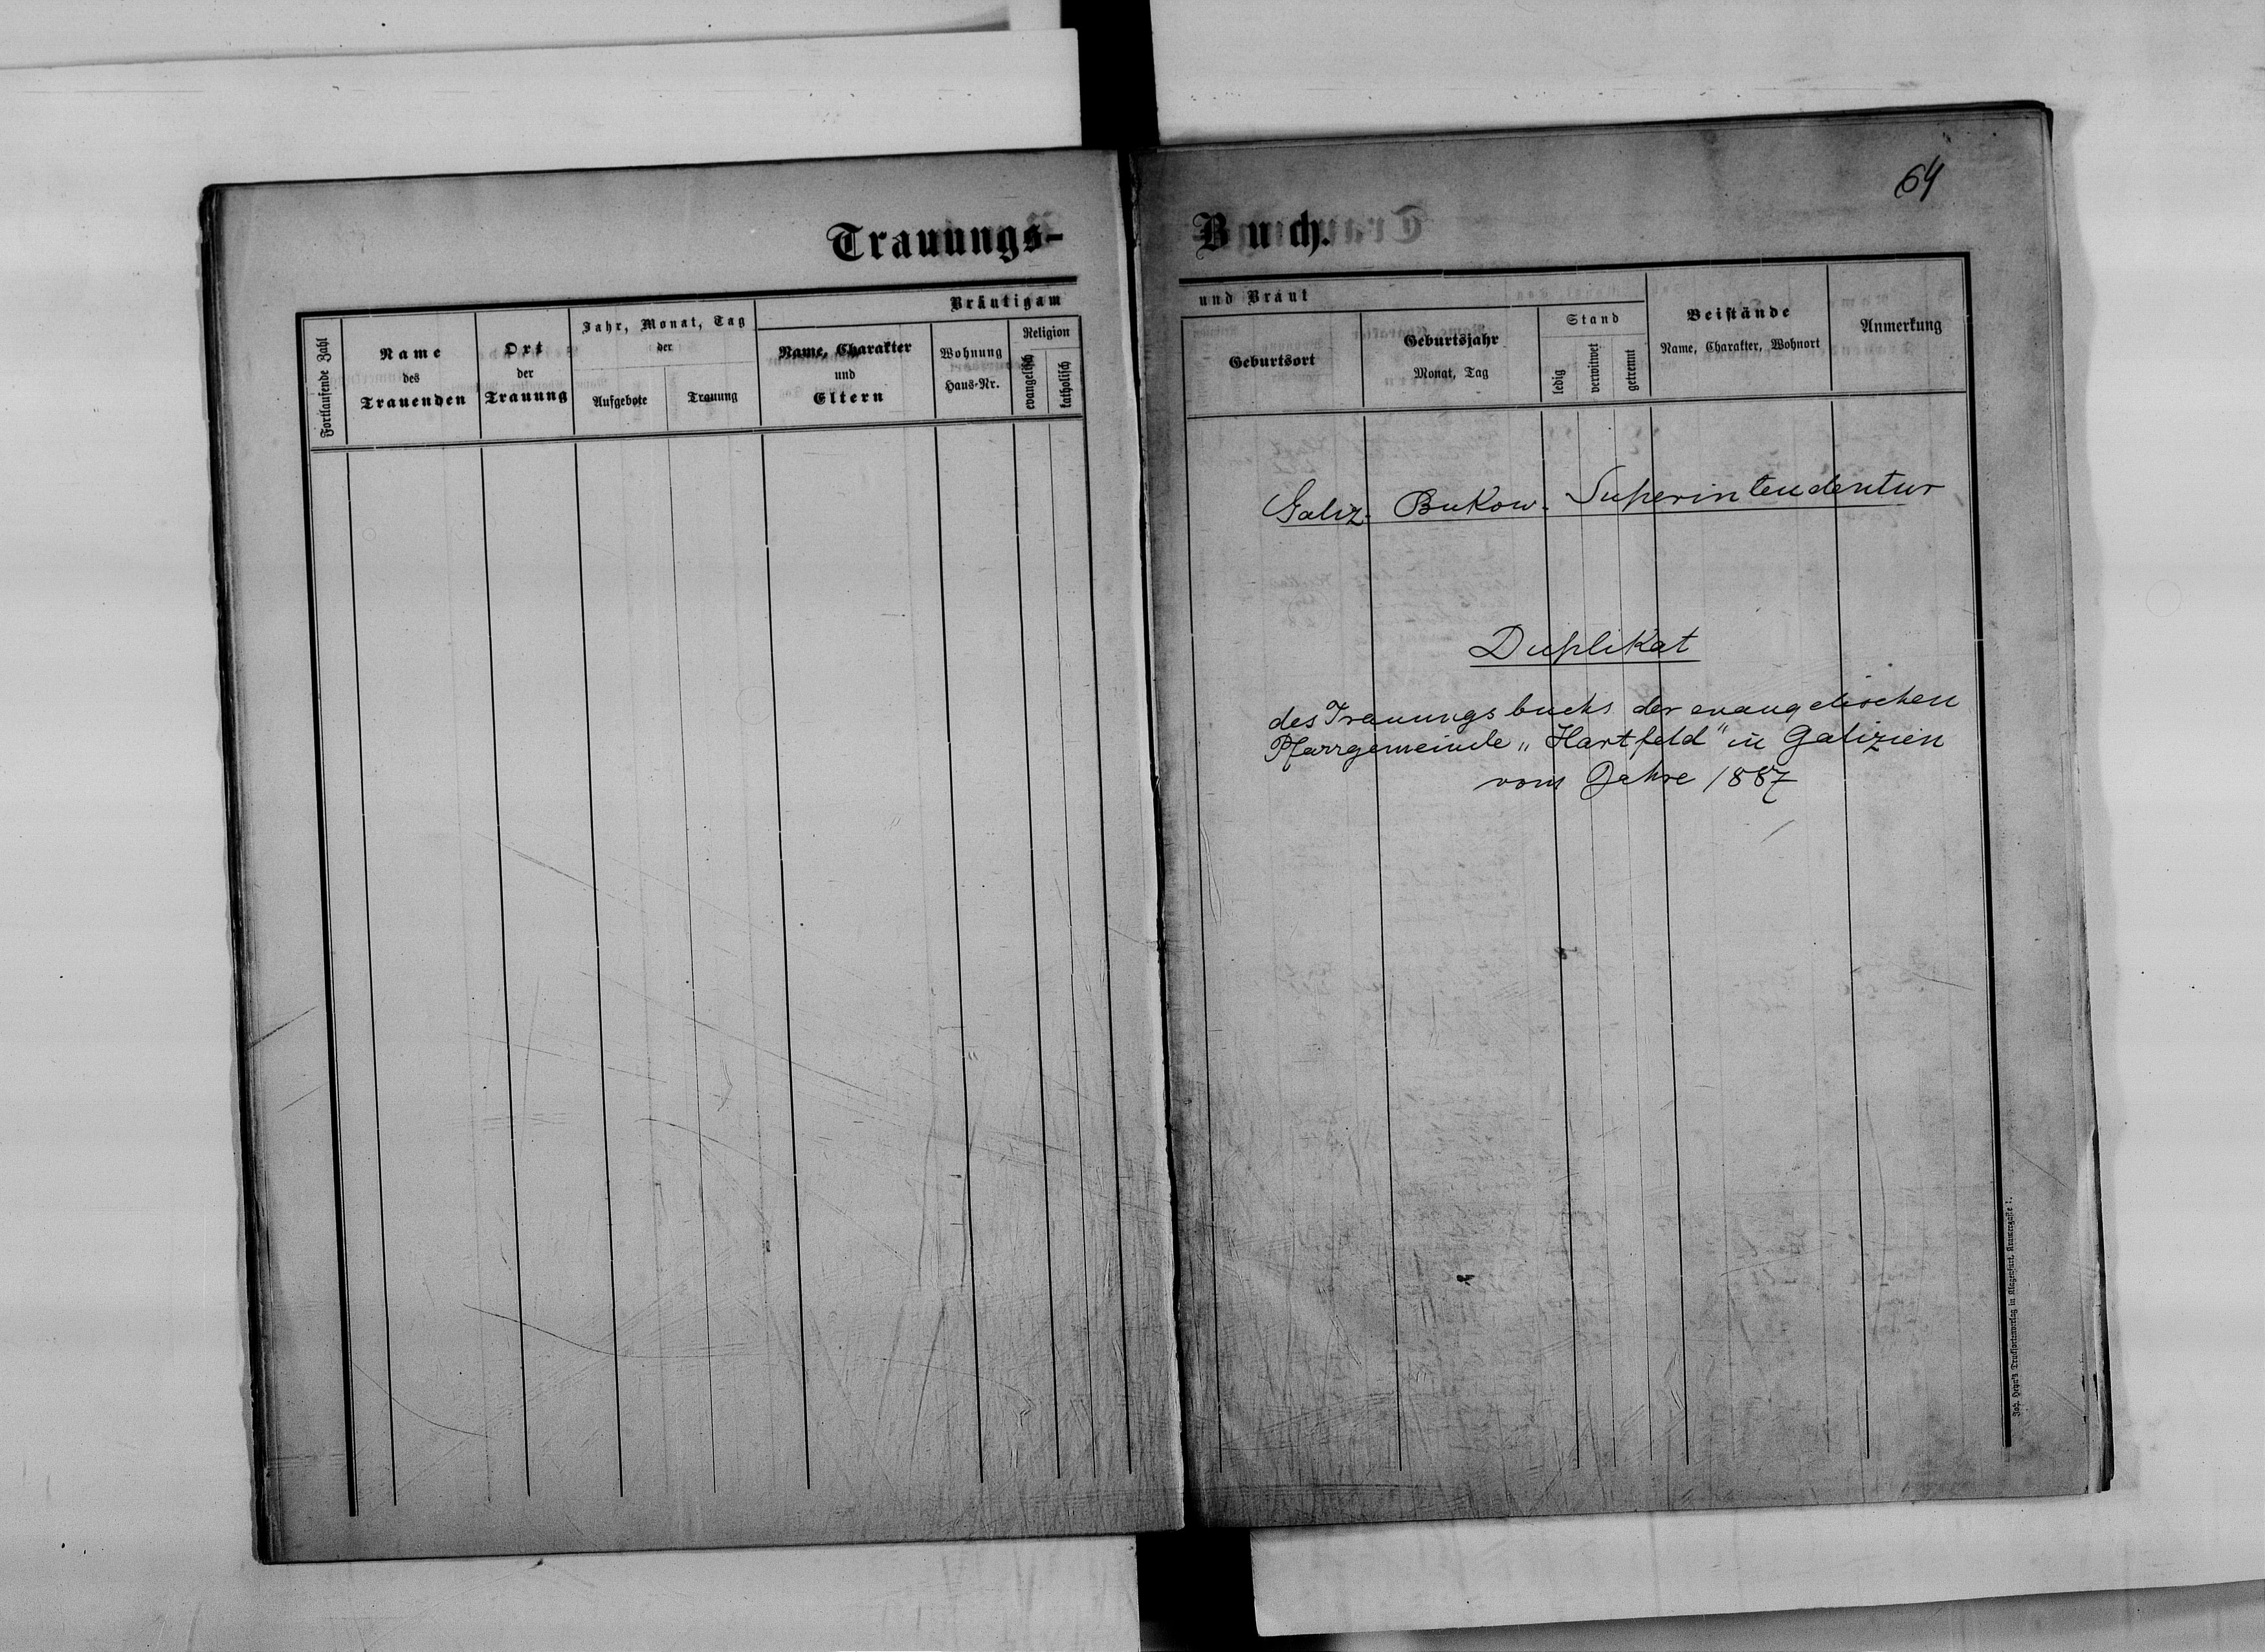 64
Trauungs-Buch.
Bräutigam und Braut
Fortlaufende Zahl
Name
des
Trauenden
Ort
der
Trauung
Jahr, Monat, Tag
der
Aufgebote
Trauung
Name, Charakter
und
Eltern
Wohnung
Haus-Nr.
Religion
evangelisch
katholisch
Geburtsort
Geburtsjahr
Monat, Tag
Stand
ledig
verwitwet
getrennt
Beistände
Name, Charakter, Wohnort
Anmerkung
Galiz. Bukow. Superintendentur
Duplikat
des Trauungsbuchs der evangelischen
Pfarrgemeinde „Hartfeld" in Galizien
vom Jahre 1887
Joh. Heyn's Drucksortenverlag in Klagenfurt, Kramergasse